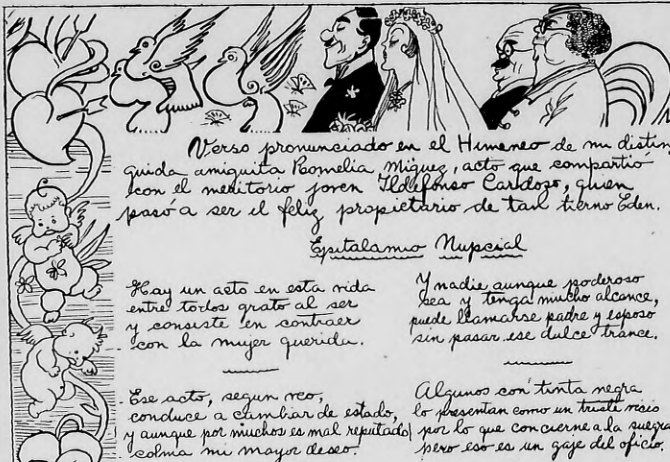 Verso pronunciado en el Himeneo de mi distin
guida amiguita Romelia Míguez, acto que compartió
con el meritorio joven Ildefonso Cardozo, quien
pasó a ser el feliz propietario de tan tierno Eden.
Epitalamio Nupcial
Hay un acto en esta vida
entre todos grato al ser
y consiste en contraer
con la mujer querida.
Ese acto, segun veo,
conduce a cambiar de estado,
y aunque por muchos es mal reputado
colma mi mayor deseo.
Y nadie aunque poderoso
sea y tenga mucho alcance,
puede llamarse padre y esposo
sin pasar ese dulce trance.
Algunos con tinta negra
lo presentan como un triste vicio
por lo que concierne a la suegra
pero eso es un gaje del oficio.